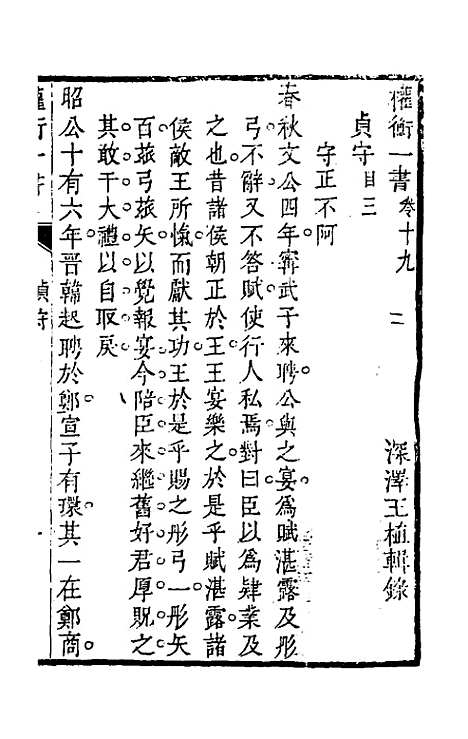 權衡一書 卷十九 二 深澤王植輯錄
貞守目三
守正不阿
春秋文公四年甯武子來聘公與之宴爲賦湛露及彤
弓不辭又不答賦使行人私焉對曰臣以爲肄業及
之也昔諸侯朝正於王王宴樂之於是乎賦湛露諸
侯敵王所愾而獻其功王於是乎賜之彤弓一彤矢
百玈弓玈矢以覺報宴今陪臣來繼舊好君厚貺之
其敢干大禮以自取戾
昭公十有六年晉韓起聘於鄭宣子有環其一在鄭商